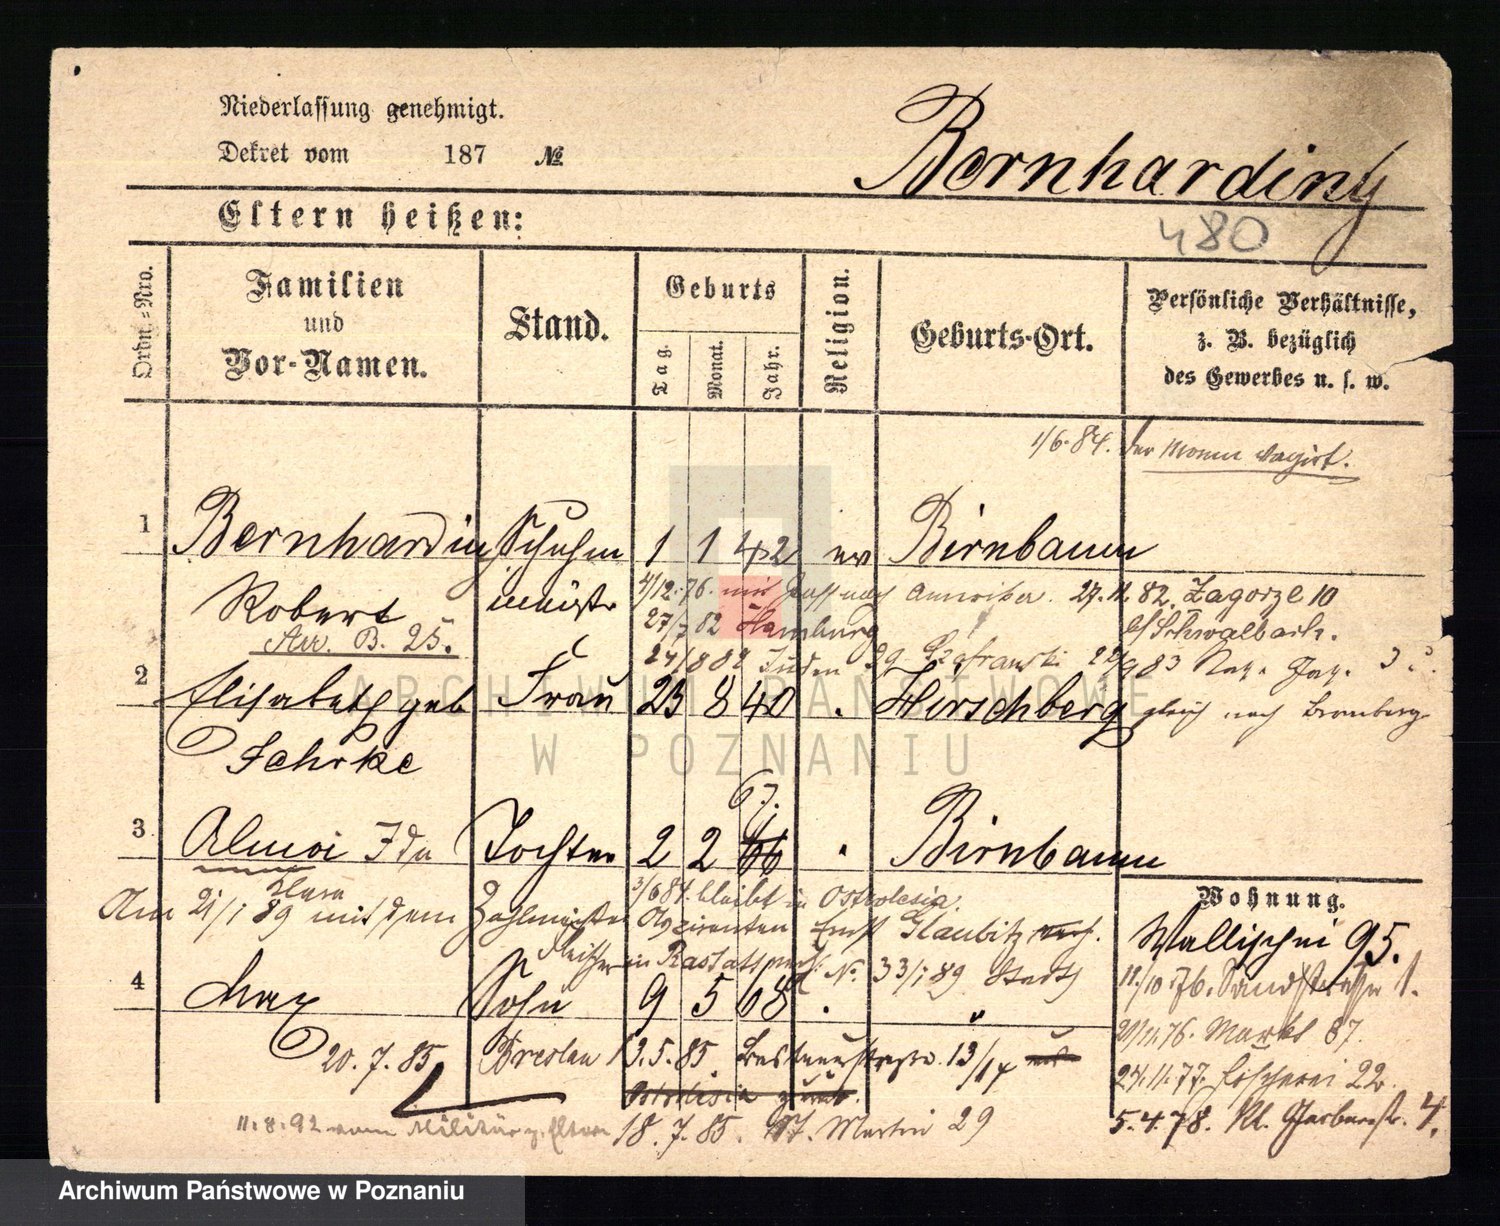 Niederlassung genehmigt.
Dekret vom 187 №
Bernharding
480
Eltern heißen:
Ordn.-Nro.
Familien
und
Vor-Namen.
Stand.
Geburts
Tag.
Monat.
Jahr.
Religion.
Geburts-Ort.
Persönliche Verhältnisse,
z. B. bezüglich
des Gewerbes u. s. w.
1/6.84. der Mann vagirt.
1 Bernharding Schuhm 1 1 42 ev Birnbaum
Robert meister
4/12.76. mit Pass nach 27.11.82. Zagorze 10
b/ Schwalbach.
27/7 82 Hamburg
B. 25.
24/8 82 Juden 29 Szafranski 83
2 Elisabeth geb Frau 23 8 40 Hirschberg
gleich nach Bromberg
Fehrke
67.
3 Ida Tochter 2 2 66 " Birnbaum
Clara
3/6 84. bleibt in Ostrolesia.
Am 21/1 89 mit dem Zahlmeister Aspiranten Ernst Glaubitz
in Rastatt No. 33/1 89 Stadt
4 Max Sohn 9 5 68 " "
Wohnung.
Wallischei 95.
11/10 76. Sandstraße 1.
20/11.76. Markt 87.
24.11.77. Fischerei 22.
5.4.78. Kl. Gerberstr. 4.
20.7.85 Breslau 13.5.85. 13/14
Ostrolesia
11.8.92 vom Militär z. Eltern 18.7.85. St. Martin 29
ARCHIWUM PAŃSTWOWE
W POZNANIU
Archiwum Państwowe w Poznaniu